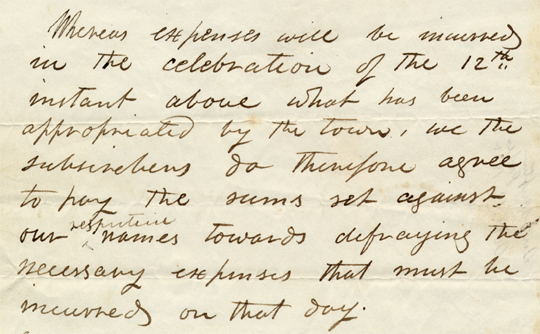 Whereas expenses will be incurred
in the celebration of the 12th
instant above what has been
appropriated by the town, we the
subscribers do therefore agree
to pay the sums set against
our respective names towards defraying the
necessary expenses that must be
incurred on that day.